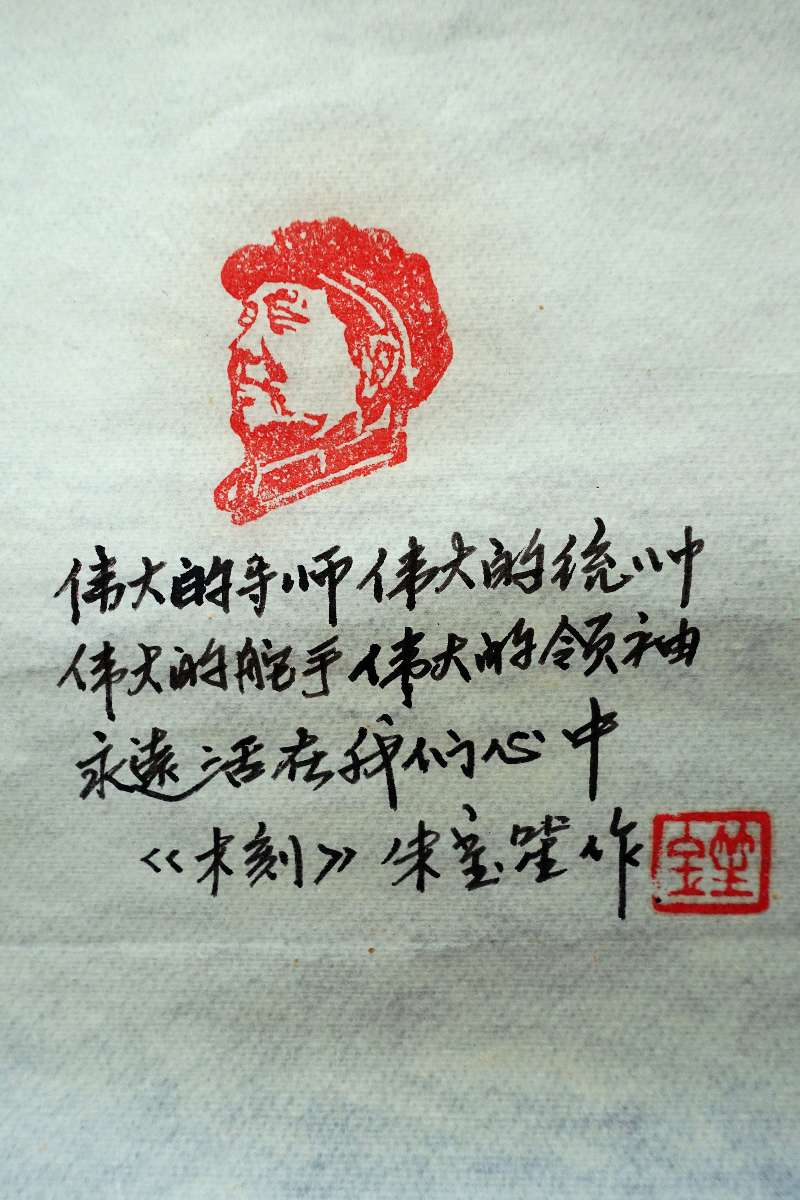 伟大的导师伟大的统帅
伟大的舵手伟大的领袖
永远活在我们心中
《木刻》朱宝荃作